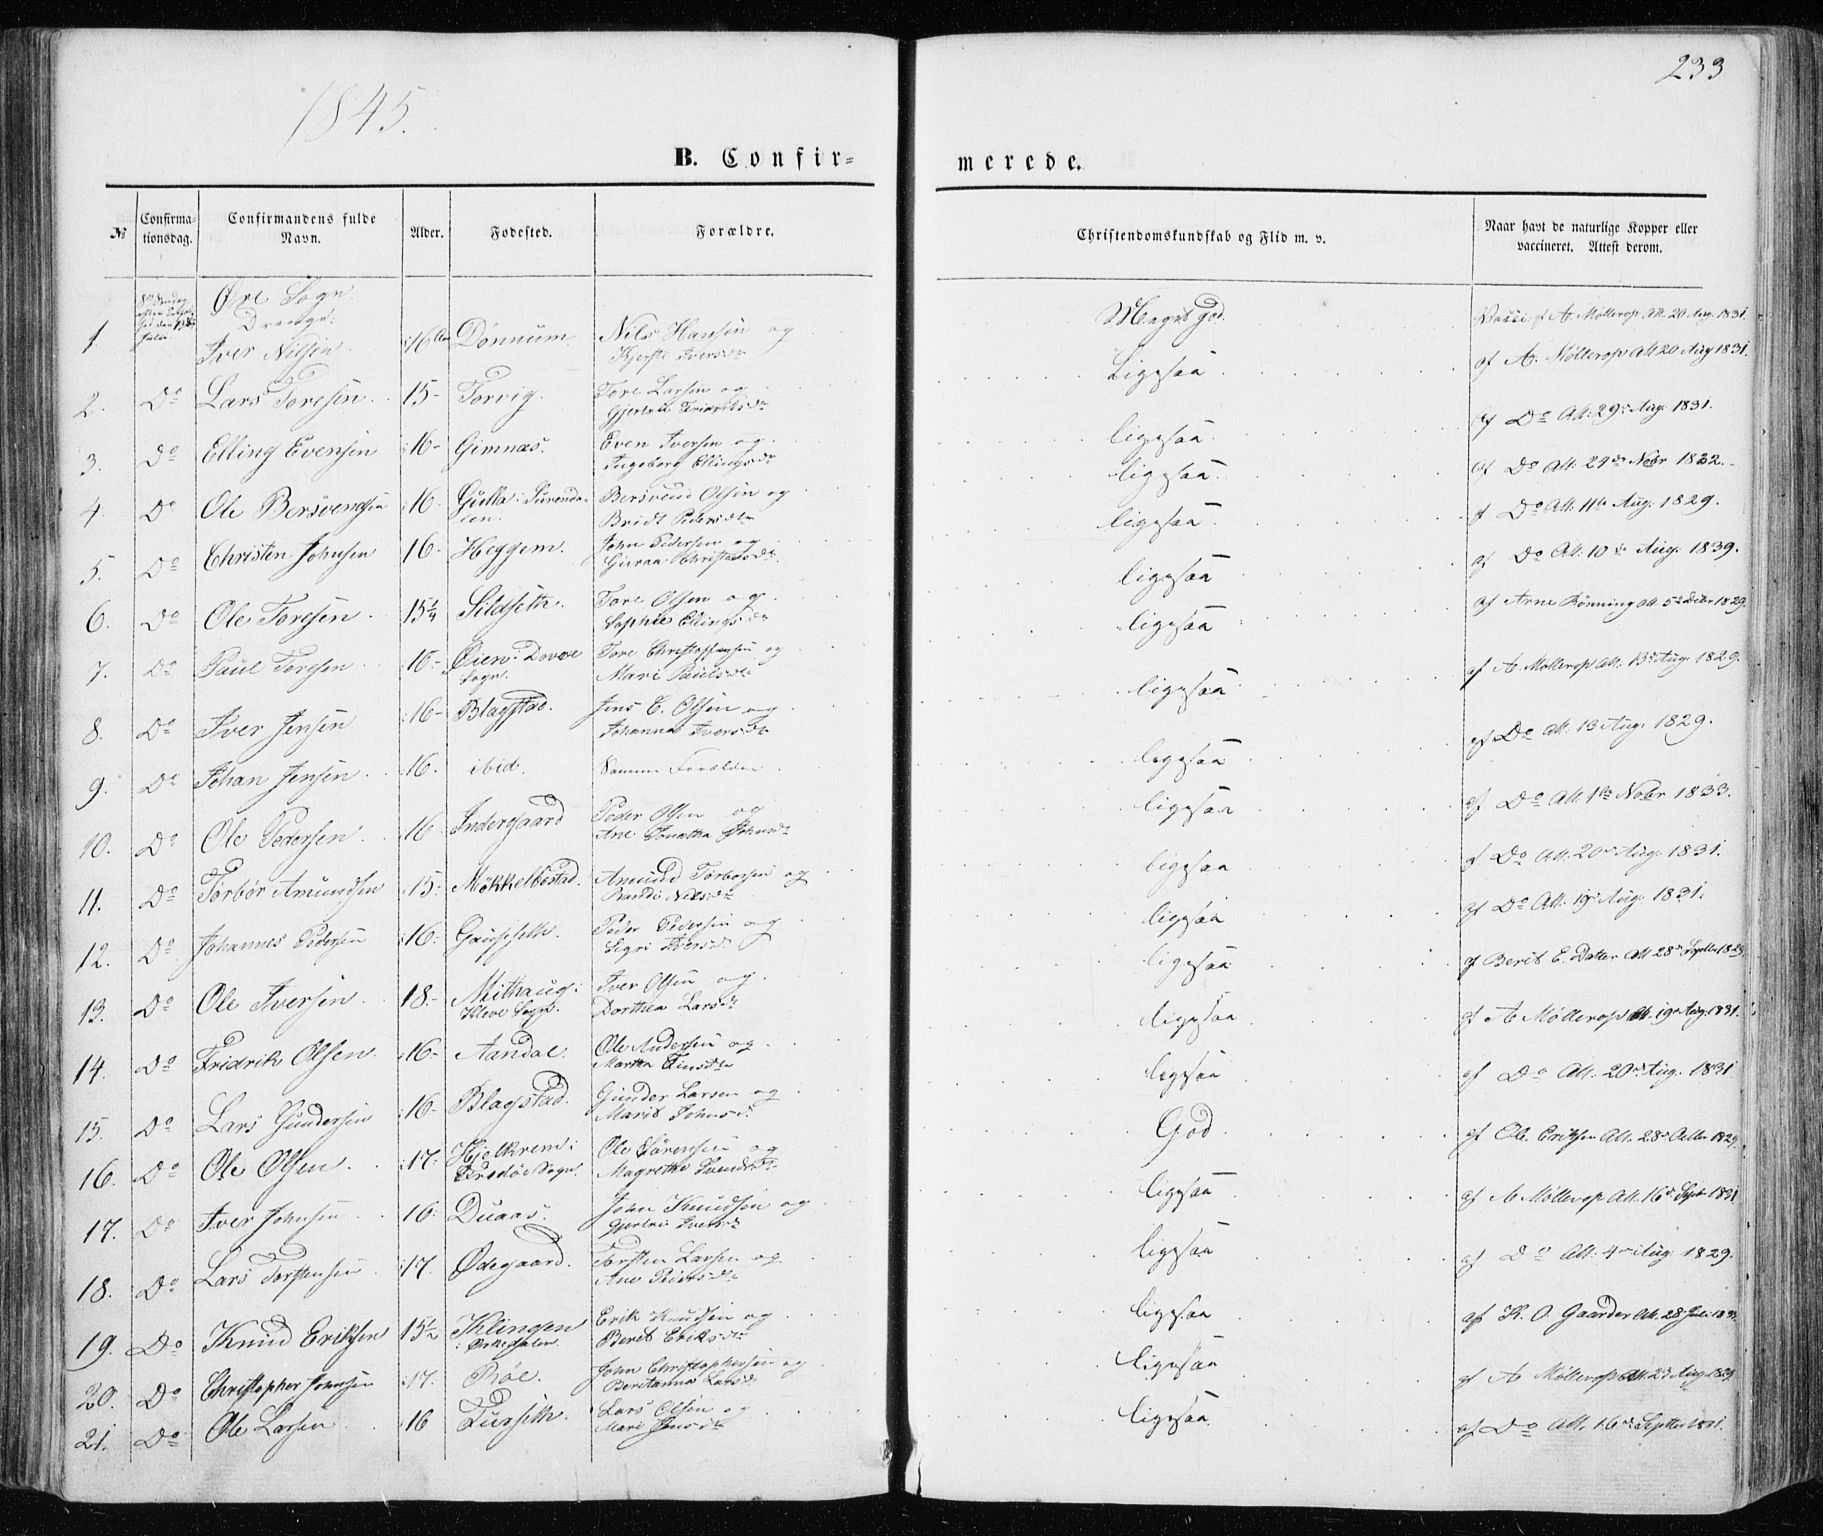 233
1845.
B. Confir-
merede.
№
Confirma-
tionsdag.
Confirmandens fulde
Navn.
Alder.
Fødested.
Forældre.
Christendomskundskab og Flid m. v.
Naar havt de naturlige Kopper eller
vaccineret. Attest derom.
Øre Sogn.
Drenge:
1. Iver Nilsen. 16 Dønnum. Nils Hansen og
Kjersti Iversdr
Meget god.
A. Møllerop Att. 20 Aug. 1831.
2. Do Lars Toresen. 15- Torvig. Tore Larsen og
Gjertru Fridriksdr
Ligesaa
af A. Møllerop Att 20 Aug 1831.
3. Do Elling Evensen 16- Gimnæs. Even Iversen og
Ingeborg Ellingsdr
ligesaa
af Do Att: 29de Aug: 1831.
4. Do Ole Bersvendsen 16- Gulla i Surenda-
len. Bersvend Olsen og
Bridt Pedersdr
ligesaa
af Do Att: 29de Nobr 1832.
5. Do Christen Johnsen 16- Heggem. John Pedersen og
Gurna Christensdr
ligesaa
af Do Att: 11te Aug: 1829.
6. Do Ole Toresen 15¼ Sildseth. Tore Olsen og
Sophie Ellingsdr
ligesaa
af Do Att. 10de Aug: 1839.
7. Do Paul Toresen 16- Øien i Dovre
Sogn. Tore Christophersen og
Mari Paulsdr
ligesaa
af Arne Rønning Att 5te Debr 1829.
8. Do Iver Jensen 16- Blagstad. Jens C. Olsen og
Johanna Iversdr
ligesaa
af A. Møllerop Att. 13de Aug: 1829.
9. Do Johan Jensen 16. ibid. Samme Forældre
ligesaa
af Do Att. 13 Aug. 1829.
10. Do Ole Pedersen 16 Indergaard Peder Olsen og
Ane Johnsdr
ligesaa
af Do Att. 1ste Nobr 1833.
11. Do Torbør Amundsen 15. Møkkelbostad. Amund Torborsen og
Nilsdr
ligesaa
af Do Att. 20de Aug. 1831.
12. Do Johannes Pedersen 16. Gauseseth. Peder Pedersen og
Sigri Iversdr
ligesaa
af Do Att. 19de Aug. 1831.
13. Do Ole Iversen 18.- Mithaug i
Kleve Sogn. Iver Olsen og
Dorthea Larsdr
ligesaa
af Berit E. Datter Att 28de Septbr 1829
14. Do Fridrik Olsen 16- Aandal. Ole Andersen og
Martha Finsdr
ligesaa
af A Møllerop Att. 19de Aug. 1831.
15. Do Lars Gundersen 16- Blagstad. Gunder Larsen og
Marit Johnsdr
ligesaa
af Do Att. 20de Aug. 1831
16. Do Ole Olsen. 17- Hjelkrem i
Sogn. Ole Sørensen og
Magrethe Svendsdr
God
af Ol. Eriksen Att. 28de Octbr 1829.
17. Do Iver Johnsen 16. Duaas. John Knudsen og
Gjertru Iversdr
ligesaa
af A Møllerop Att. 16de Septr 1831
18. Do Lars Torstensen 17. Ødegaard. Torsten Larsen og
Ane Pedersdr
ligesaa
af Do Att. 4de Aug. 1829.
19. Do Knud Eriksen 15½ Klingen
i Orkedalen. Erik Knudsen og
Berit Eriksdr
ligesaa
af K. O. Gaarder Att. 28 Juli
20. Do Christopher Johnsen 17. Røe. John Christophersen og
Beritanna Larsdr
ligesaa
af A Møllerop Att. 23 Aug. 1829
21. Do Ole Larsen 16 Furseth. Lars Olsen og
Mari Jensdr
ligesaa
af Do Att. 16de Septbr 1831.